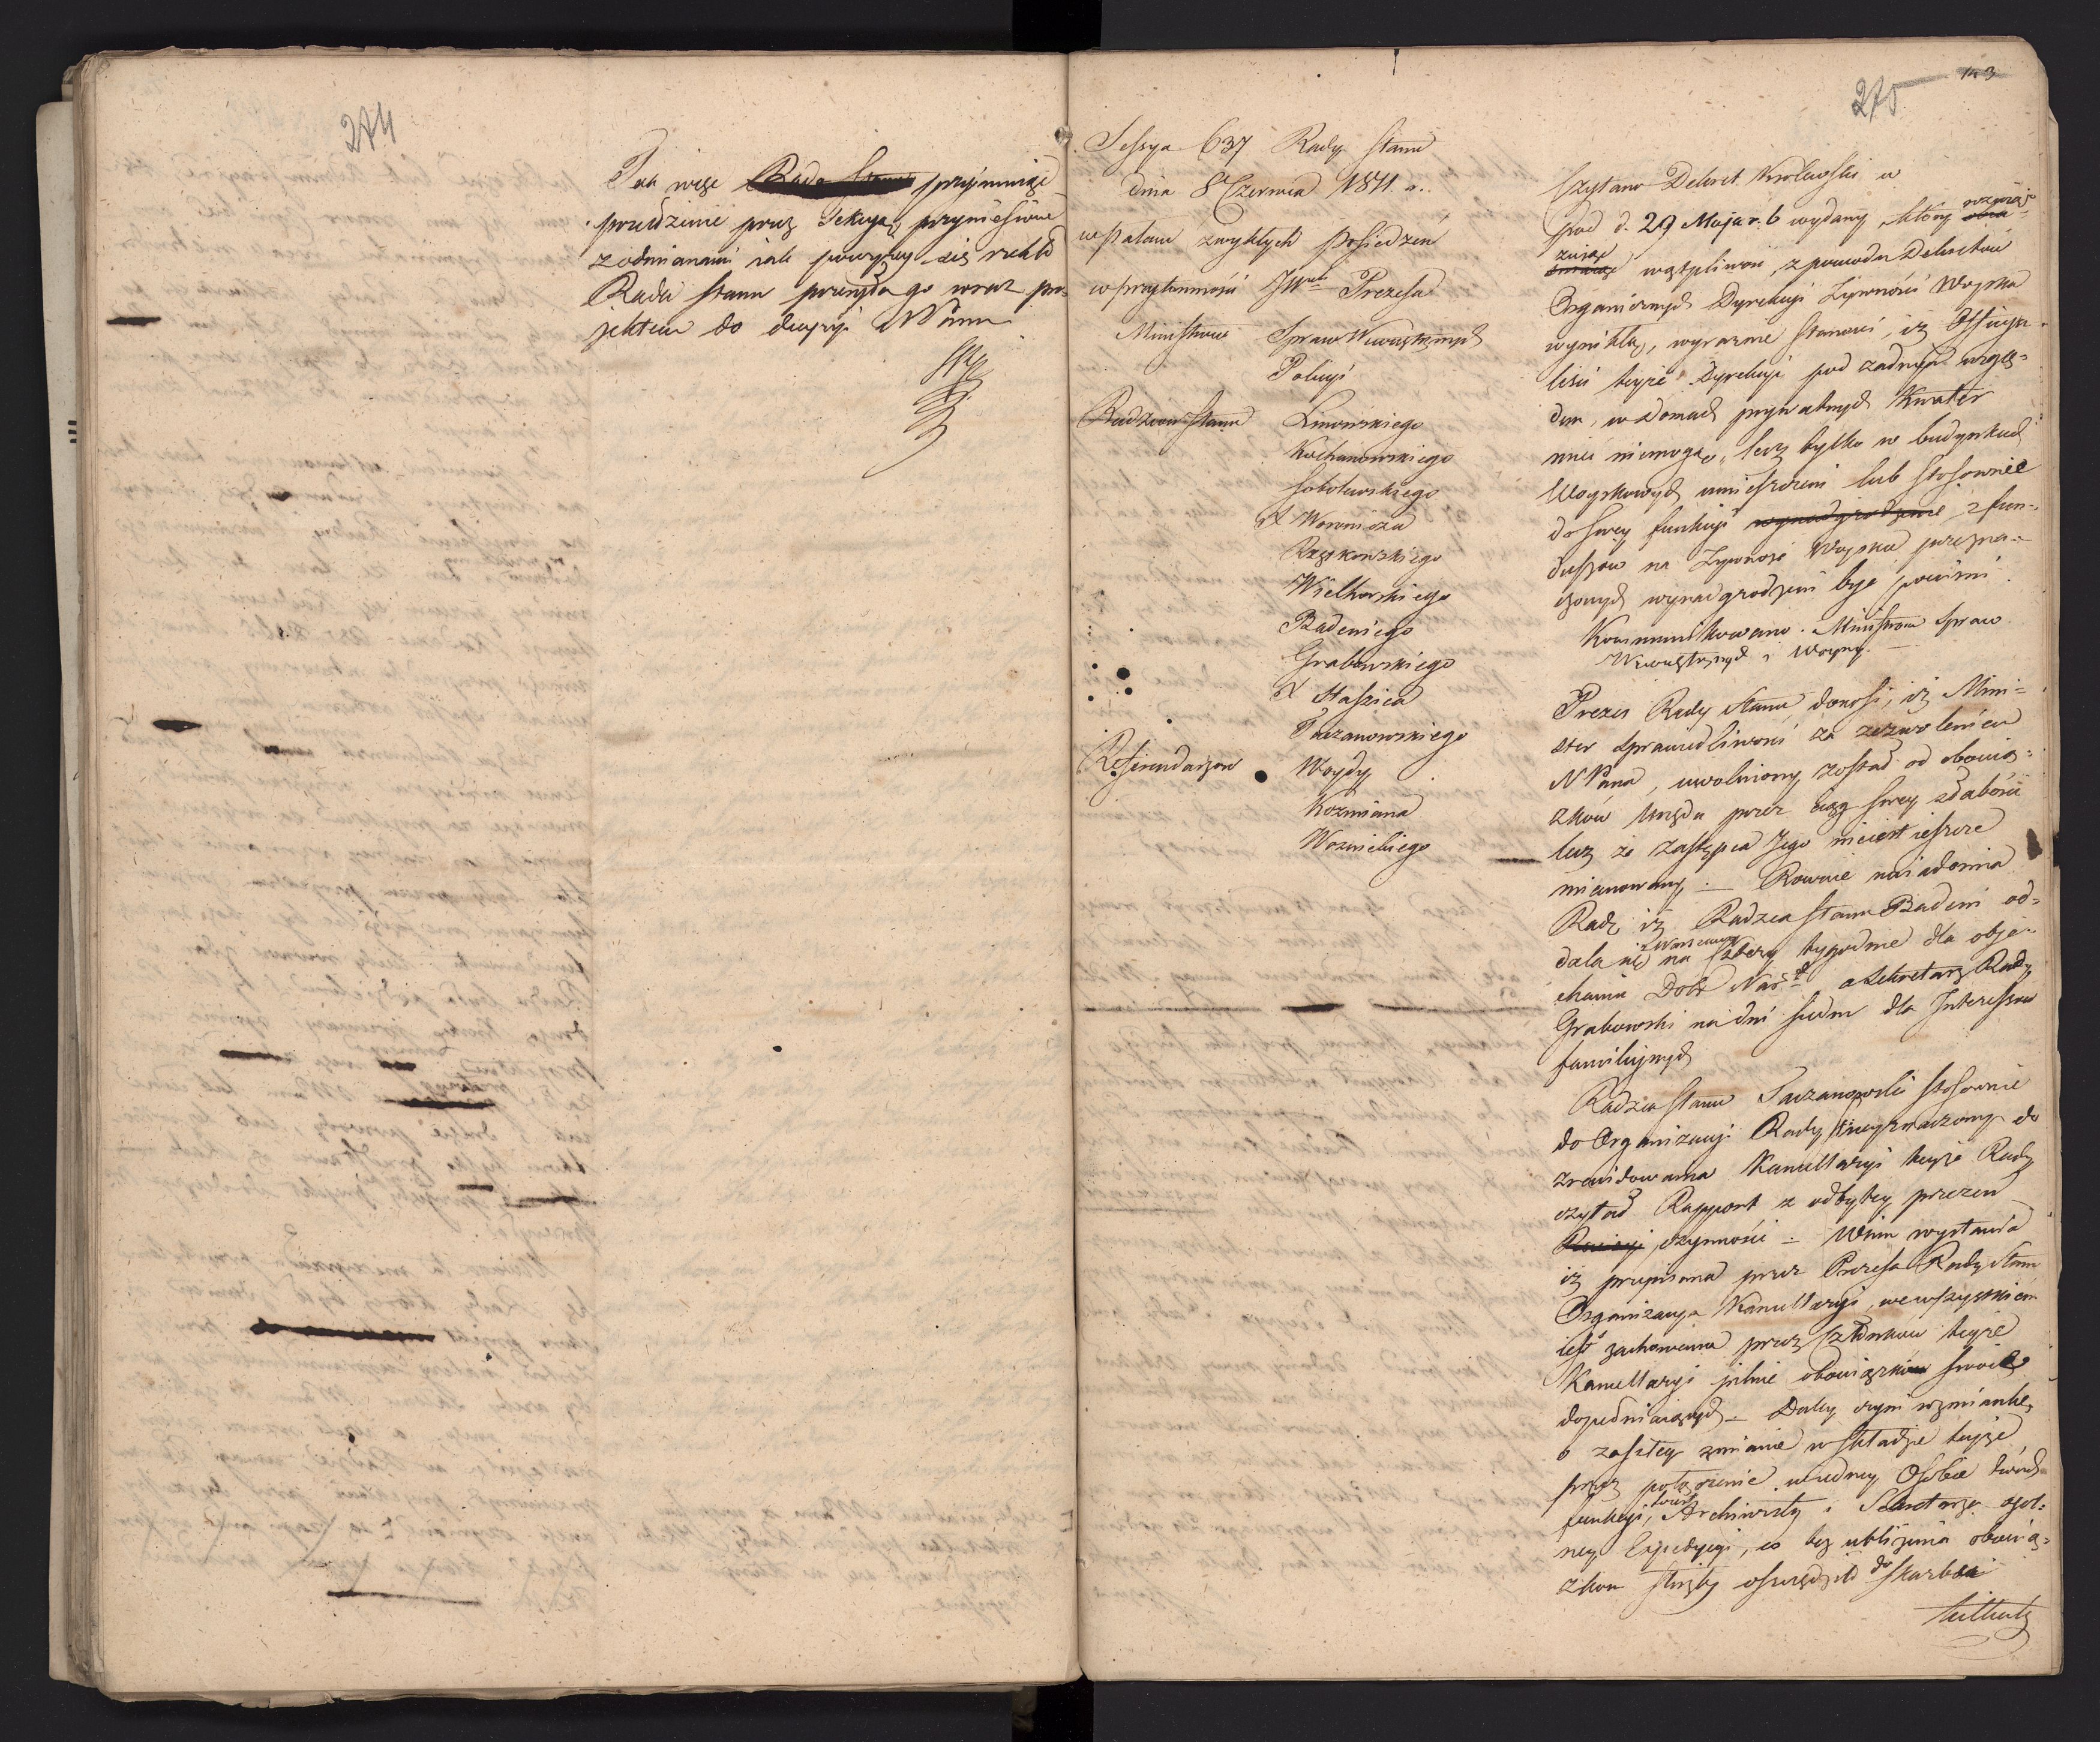 274
Tak więc Rada Stanu przyimuiąc
sprawdzenie przez Sekcyą przyniesione
z odmianami iak powyżey się rzekło
Rada Stanu przesyła go wraz pro-
jektem do decyzyi NPana
275
143
Sessya 637 Rady Stanu
dnia 8 Czerwca 1811 r.
w pałacu zwykłych posiedzeń
w przytomności JW Prezesa
Ministrów Spraw Wewnętrznych
Policyi
Radzców Stanu Linowskiego
Kochanowskiego
Sobolewskiego
X Woronicza
Rzętkowskiego
Wielhorskiego
Badeniego
Grabowskiego
X Staszica
Taczanowskiego
Referendarzow Woydy
Kozmiana
Woznickiego
Czytano Dekret Krolewski w
pod d. 29 Maja r. b wydany, który
wątpliwość, z powodu Dekretów
Organicznych Dyrekcyi Żywności Woyska
wynikłą, wyraźnie stanowi, iż Officya-
liści teyże Dyrekcyi pod żadnym wzglę-
dem, w domach prywatnych Kwater
mieć niemogą, lecz tylko w budynkach
Woyskowych umieszczeni lub stosownie
do swey funkcyi wynadgrodzenie z fun-
duszow na Żywność Woyska przezna-
czonych wynadgrodzeni być powinni.
Kommunikowano Ministrom Spraw
Wewnętrznych i Woyny.
Prezes Rady Stanu donosi, iż Mini-
ster Sprawiedliwości za zezwoleniem
NPana, uwolniony został od obowią-
zków Urzędu przez ciąg swey słabości
lecz że zastępca Jego nieiest ieszcze
mianowany. Rownie uwiadomia
Radę iż Radzca Stanu Badeni od-
dala się
z Warszawy
na cztery tygodnie dla obie-
chania Dobr Nar., a Sekretarz Rady
Grabowski na dni siedm dla Interessow
familijnych
Radzca Stanu Taczanowski stosownie
do Organizacyi Rady wyznaczony do
zrewidowania Kancellaryi teyże Rady
czytał Rapport z odbytey przezeń
Rewizyi czynności. W nim wystawia
iż przepisana przez Prezesa Rady Stanu
Organizacya Kancellaryi, we wszystkiém
iest zachowana przez Członków teyże
Kancellaryi pilnie obowiązków swoich
dopełniaiących. Daley czyni wzmiankę
o zaszłey zmianie w składzie teyże
przez połączenie w iedney Osobie dwóch
funkcyi, Archiwisty i Sekretarza ogol-
ney Expedycyi, co bez ubliżenia obowią-
zkom służby oszczędziło dla Skarbu